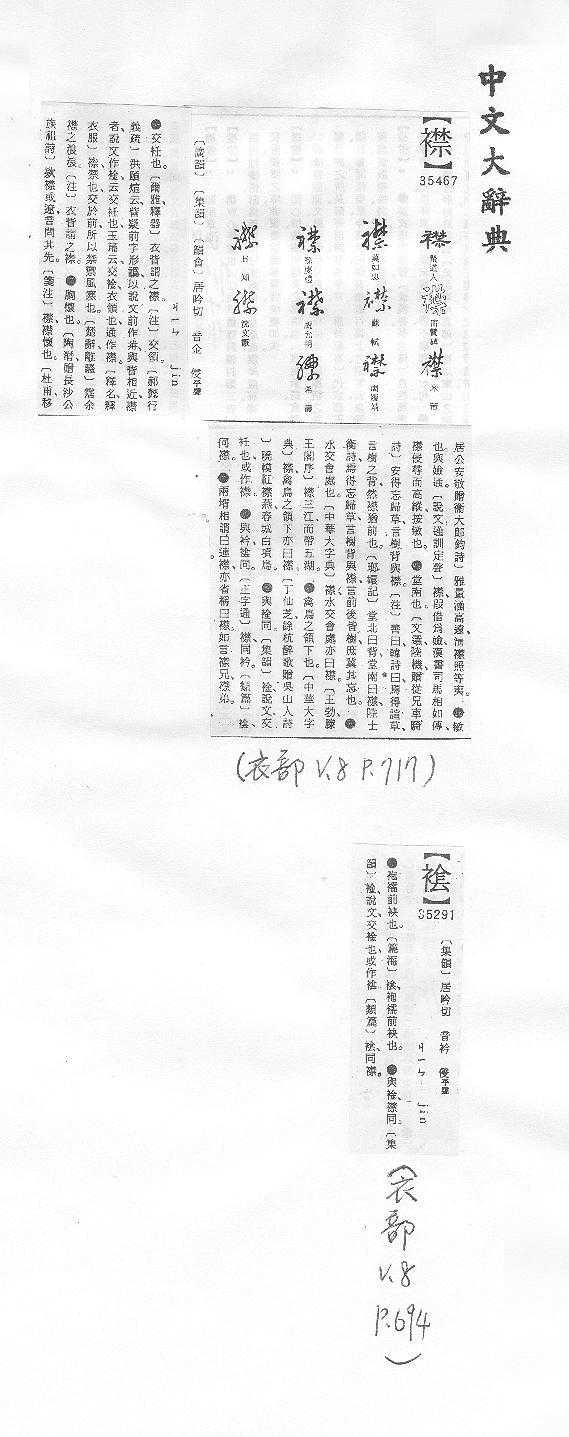 中文大辭典
【襟】
35467
米芾
莫如忠
蘇軾
周履靖
祝允明
〔廣韻〕〔集韻〕〔韻會〕居吟切 音金 侵平聲
ㄐㄧㄣ jin
●交衽也。〔爾雅釋器〕衣眥謂之襟。〔注〕交領。〔郝懿行
義疏〕洪頤煊云眥疑前字形譌以說文前作歬與眥相近襟
者說文作 云交衽也玉篇云交 衣領也通作襟。〔釋名釋
衣服〕襟禁也交於前所以禁禦風寒也。〔楚辭離騷〕霑余
襟之浪浪〔注〕衣眥謂之襟。●胸懷也。〔陶潛贈長沙公
族祖詩〕款襟或遼音問其先。〔箋注〕襟襟懷也。〔杜甫移
居公安敬贈衛大郎鈞詩〕雅量涵高遠清襟照等夷。●敏
也與 通。〔說文通訓定聲〕襟假借為 漢書司馬相如傳
襟侵尋而高縱按敏也。●堂南也。〔文選陸機贈從兄車騎
詩〕安得忘歸草言樹背與襟〔注〕善曰韓詩曰焉得諠草
言樹之背然襟猶前也。〔瑯嬛記〕堂北曰背堂南曰襟陸士
衡詩焉得忘歸草言樹背與襟言前後皆樹庶冀其忘也。●
水交會處也〔中華大字典〕襟水交會處亦曰襟。〔王勃滕
王閣序〕襟三江而帶五湖。●禽鳥之領下也。〔中華大字
典〕襟禽鳥之領下亦曰襟〔丁仙芝餘杭醉歌贈吳山人詩
〕曉幙紅襟燕春城白項烏。●與 同。〔集韻〕 說文交
衽也或作襟。●與衿 同。〔正字通〕襟同衿。〔類篇〕
同襟。●兩壻相謂曰連襟亦省稱曰襟如言襟兄襟弟。
(衣部 V.8 P.717)
35291
〔集韻〕居吟切 音衿 侵平聲
ㄐㄧㄣ jin
●袍襦前袂也。〔篇海〕 袍襦前袂也。●與 襟同。〔集
韻〕 說文交 也或作襟〔類篇〕 同襟。
(衣部 V.8 P.694)